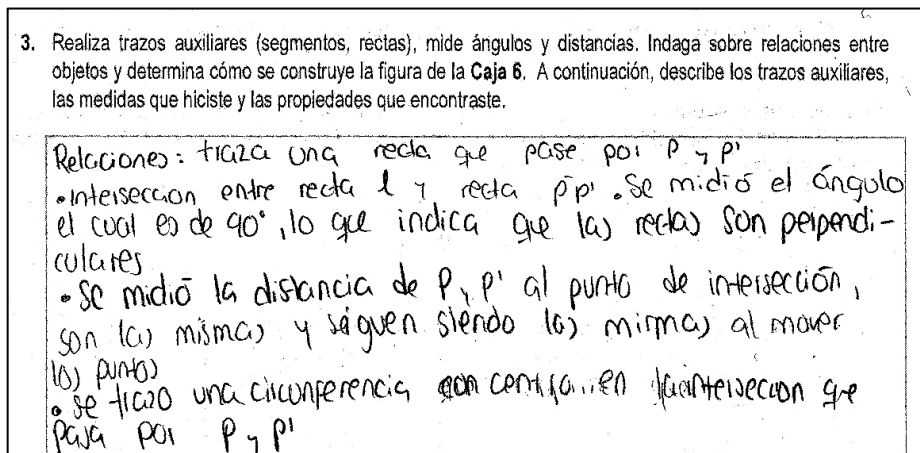 3. Realiza trazos auxiliares (segmentos, rectas), mide ángulos y distancias. Indaga sobre relaciones entre
objetos y determina cómo se construye la figura de la Caja 6. A continuación, describe los trazos auxiliares,
las medidas que hiciste y las propiedades que encontraste.
Relaciones: traza una recta que pase por P y P'
• Intersección entre recta l y recta PP' . Se midió el ángulo
el cual es de 90°, lo que indica que las rectas son perpendi-
culares
• Se midió la distancia de P y P' al punto de intersección,
son las mismas y siguen siendo las mismas al mover
los puntos
• se trazo una circunferencia con centro en la intersección que
pasa por P y P'